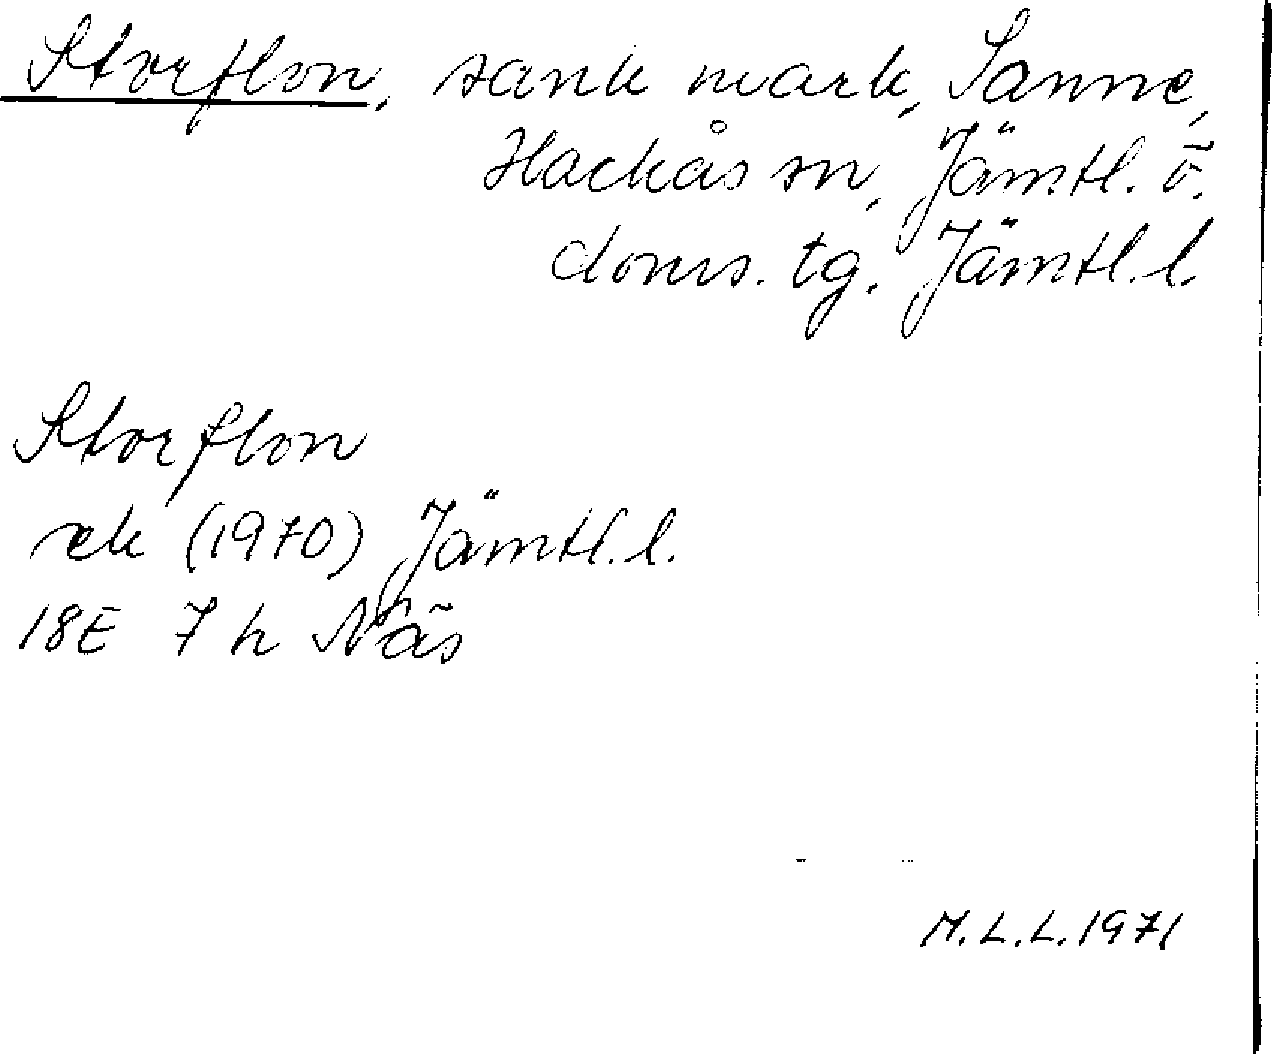 Storflon, sank mark, Sanne,
Hackås sn, Jämtl. ö.
doms. tg. Jämtl. l.
Storflon
ek (1970) Jämtl. l.
18E 7h Näs
M.L.L. 1971